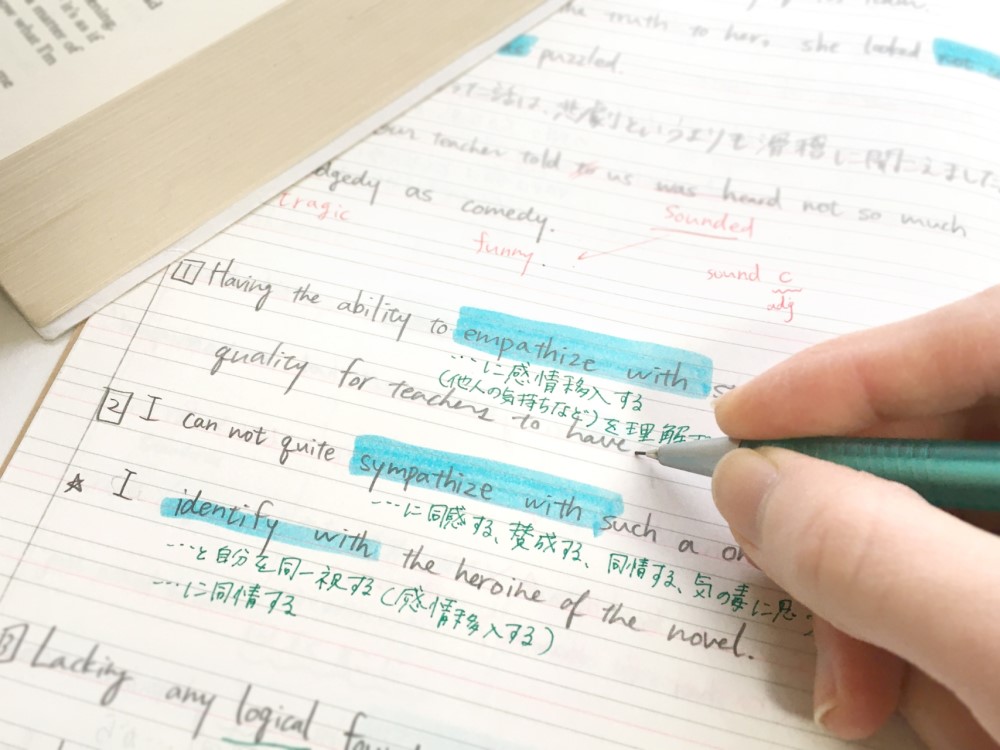 it's as if
matter of
what I'm
the truth to her, she looked not
puzzled.
話は、悲劇というよりも滑稽に聞こえました
our teacher told to us was heard not so much
as comedy.
tragic
Sounded
funny.
sound C
adj
1 Having the ability to empathize with
…に感情移入する
(他人の気持ちなど)を理解
quality for teachers to have
2 I can not quite sympathize with such a
…に同感する、賛成する、同情する、気の毒に思う
☆ I identify with the heroine of the novel.
…と自分を同一視する(感情移入する)
…に同情する
3 Lacking any logical